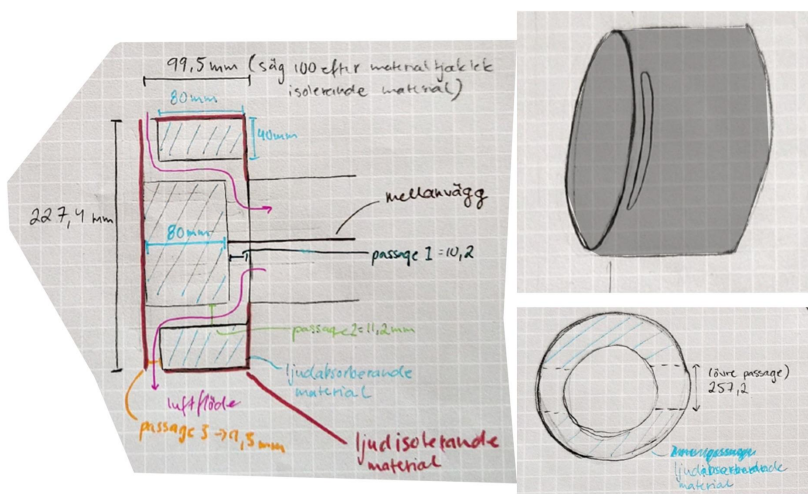 99,5 mm (säg 100 efter materialtjocklek
isolerande material)
80mm
40mm
227,4 mm
mellanvägg
80mm
passage 1 = 10,2
passage 2 = 11,2mm
ljudabsorberande
material
luftflöde
passage 3 → 9,5 mm
ljudisolerande
material
(övre passage)
257,2
ljudabsorberande
material